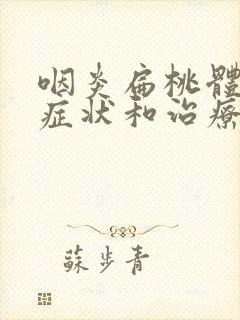 咽炎扁桃體
症状和治療
蘇步青